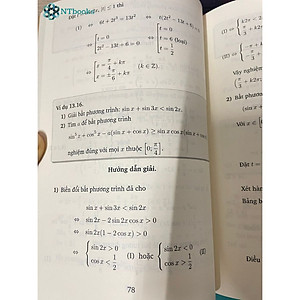 NTbooks
thì
6t + 2t³ = 13t²
t = 0
2t² − 13t + 6 = 0
t = 0
t = 6 (loại)
t = 1/2
x = π/4 + kπ
x = ± π/6 + kπ
(k ∈ ℤ).
Ví dụ 13.16.
1) Giải bất phương trình: sin x + sin 3x < sin 2x.
2) Tìm a để bất phương trình
nghiệm đúng với mọi x thuộc [0; π/4].
Hướng dẫn giải.
1) Biến đổi bất phương trình đã cho
sin x + sin 3x < sin 2x
⇔ sin 2x − 2 sin 2x cos x > 0
⇔ sin 2x(1 − 2 cos x) > 0
⇔ { sin 2x > 0 cos x < 1/2 (I) hoặc { sin 2x < 0 cos x > 1/2 (II)
78
(I) ⇔
(II) ⇔
Vậy nghiệm
2) Bất phương
Với x ∈
Đặt t =
Xét hàm
Bảng b
Điều